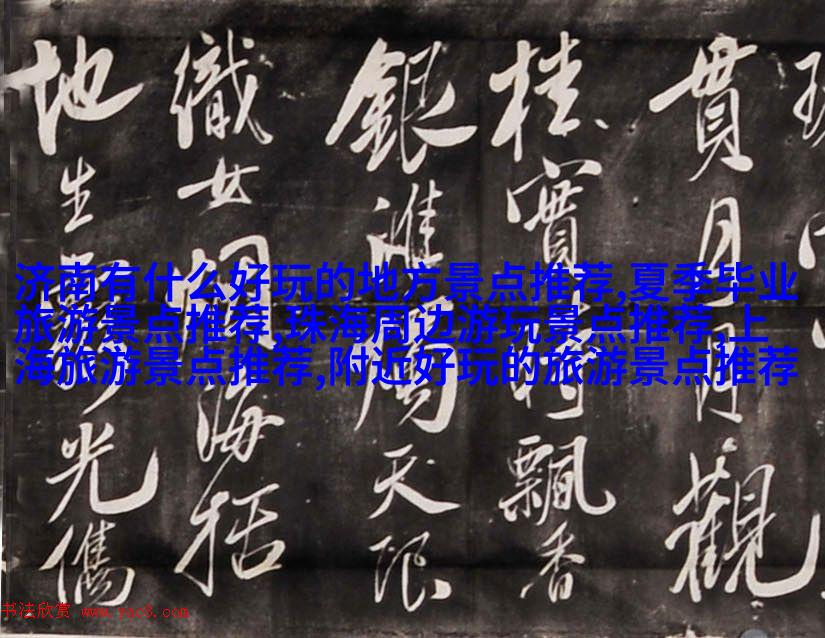 貫月月觀
桂實飄香
銀潢周天限
織女海括
地生光儁
济南有什么好玩的地方景点推荐,夏季毕业
旅游景点推荐,珠海周边游玩景点推荐,上
海旅游景点推荐,附近好玩的旅游景点推荐
书法欣赏 www.yac8.com